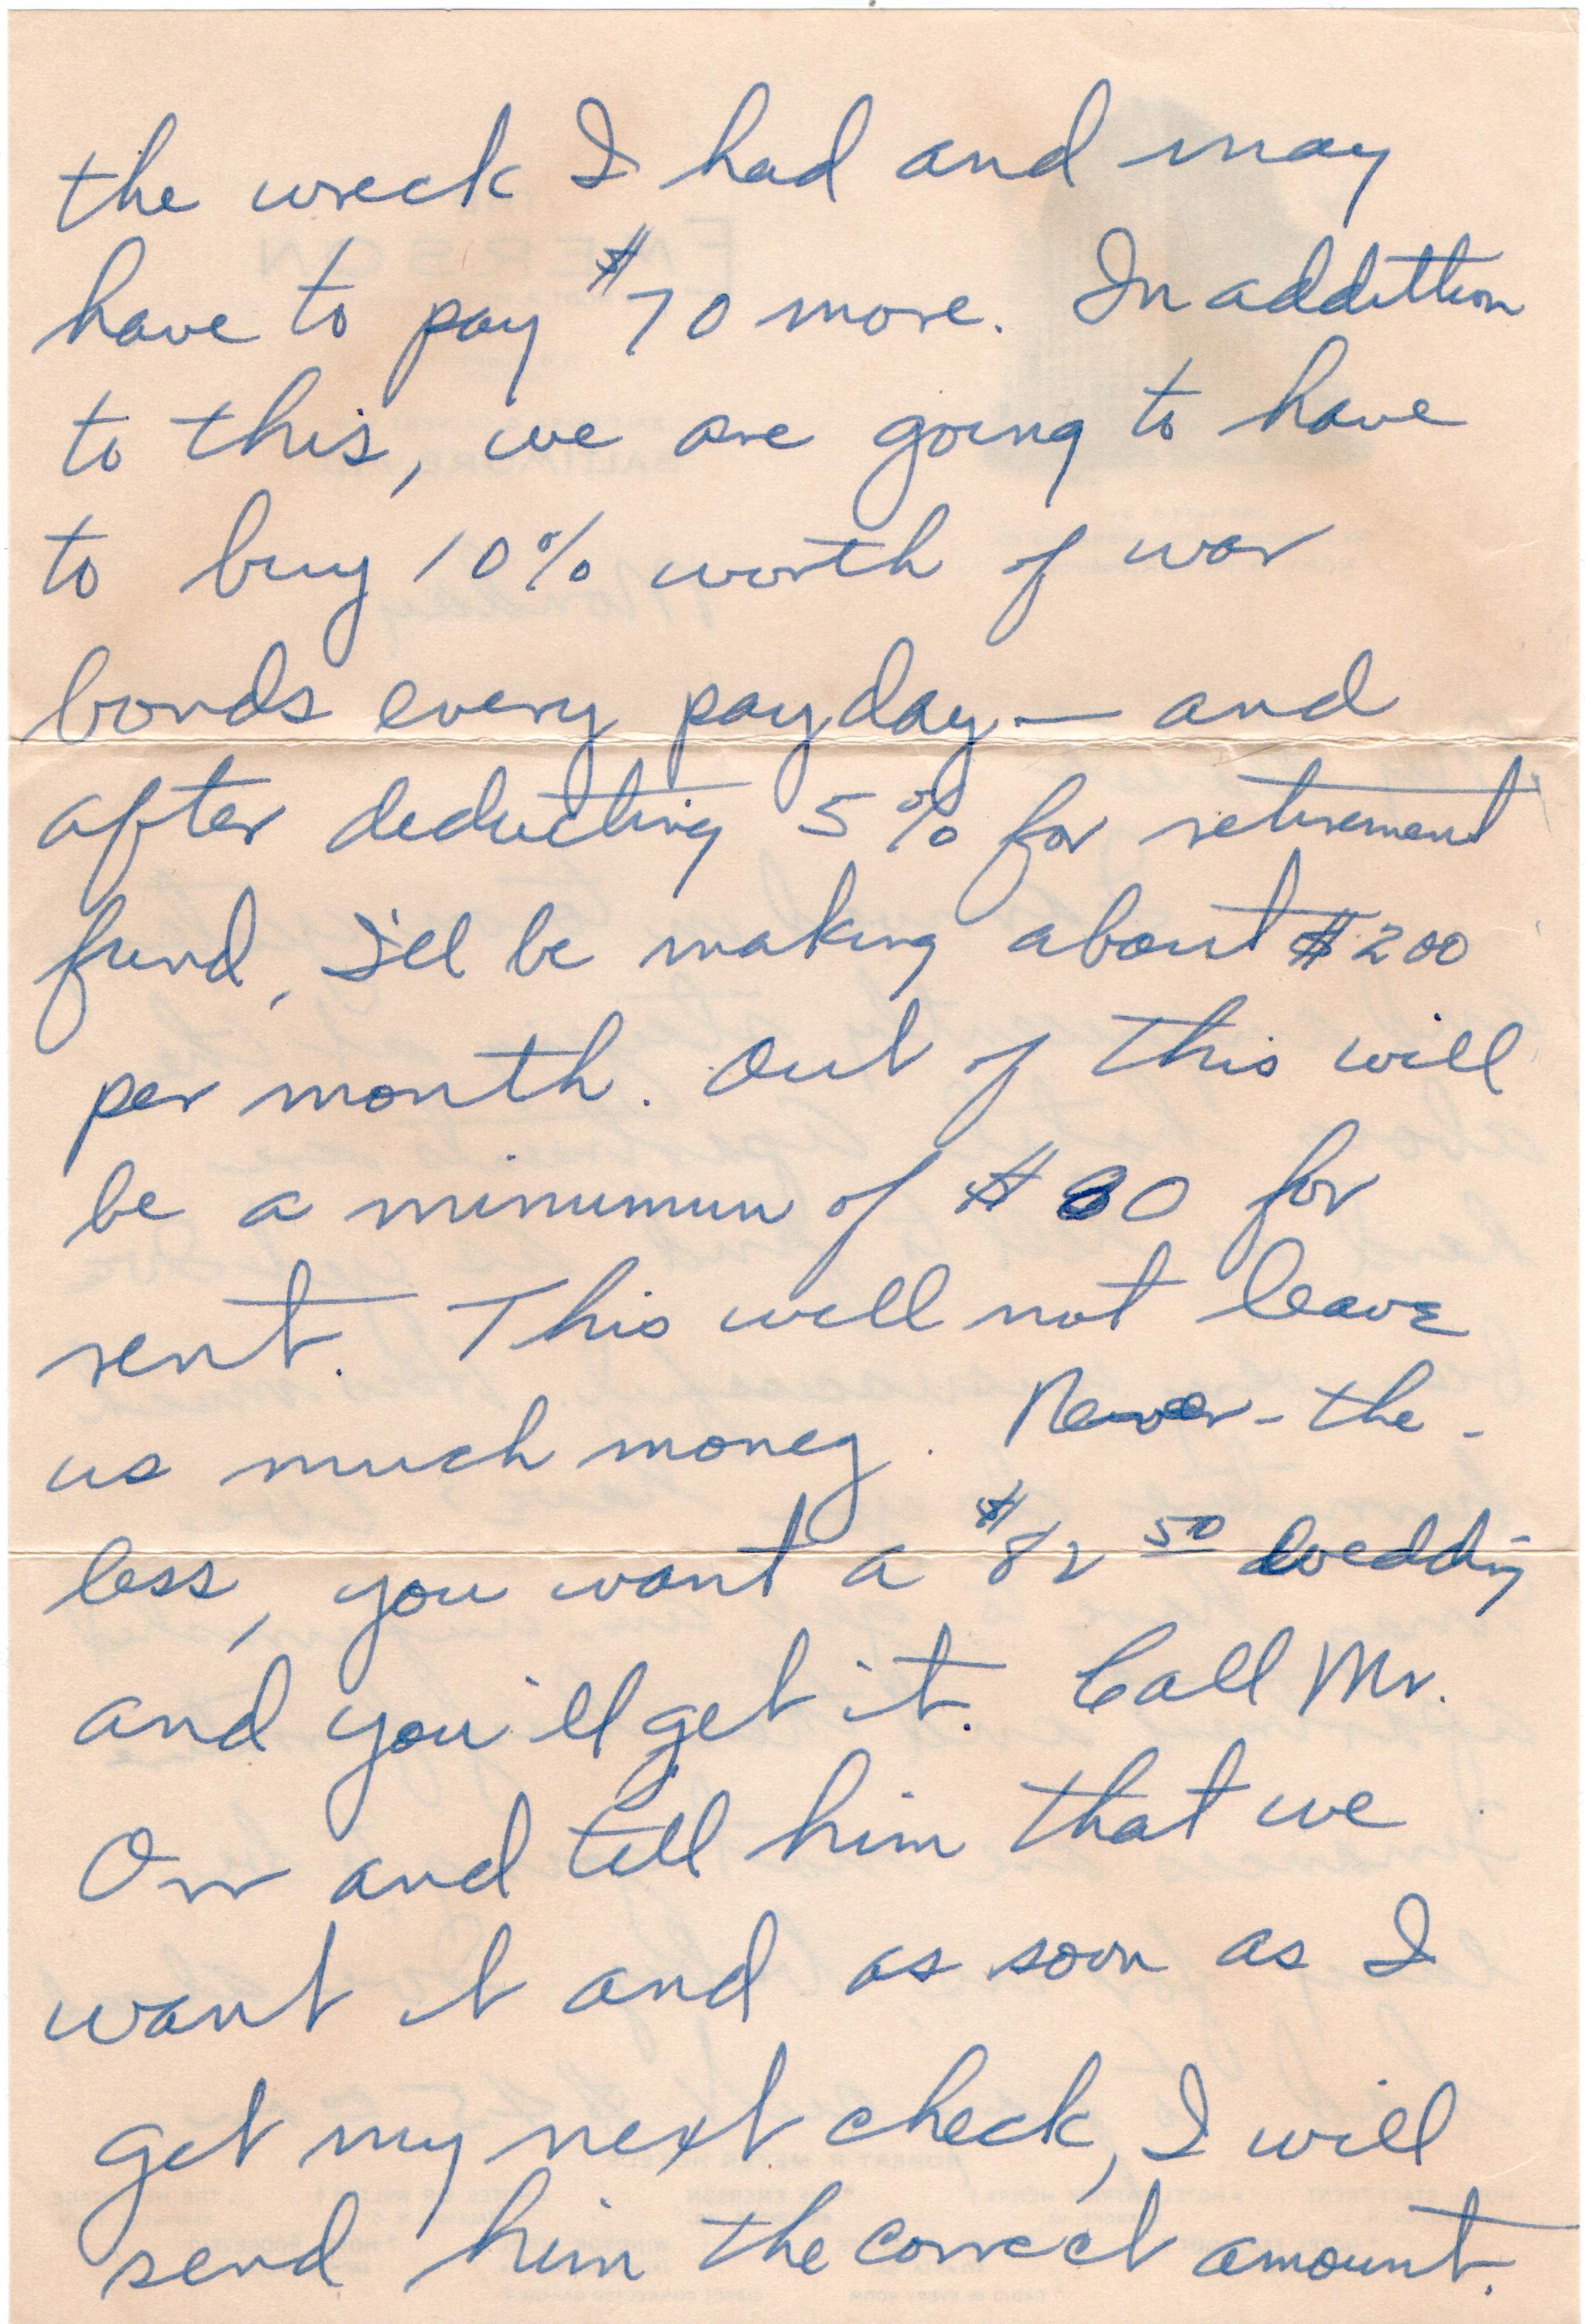 the wreck I had and may
have to pay $70 more. In addittion
to this, we are going to have
to buy 10% worth of war
bonds every payday — and
after deducting 5% for retirement
fund, I'll be making about $200
per month. Out of this will
be a minumum of $80 for
rent. This will not leave
us much money. Never-the-
less, you want a $82 50 wedding
and you'll get it. Call Mr.
Orr and tell him that we
want it and as soon as I
get my next check, I will
send him the correct amount.